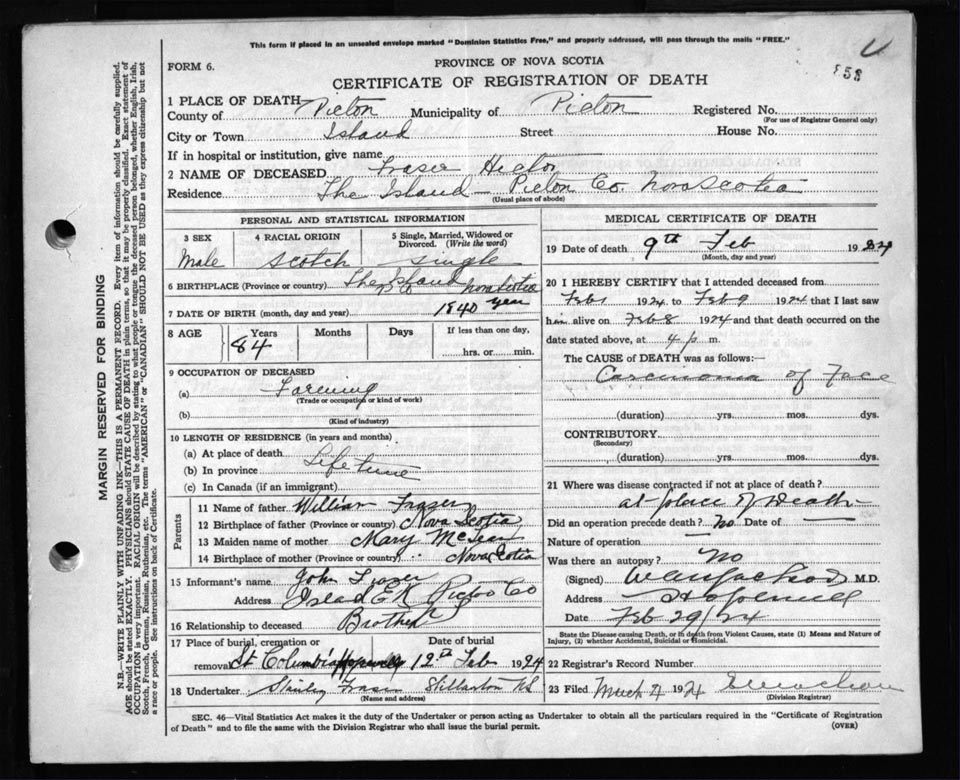 This form if placed in an unsealed envelope marked "Dominion Statistics Free," and properly addressed, will pass through the mails "FREE."
FORM 6.
PROVINCE OF NOVA SCOTIA
CERTIFICATE OF REGISTRATION OF DEATH
1 PLACE OF DEATH
County of Picton Municipality of Picton Registered No.
(For use of Registrar General only)
City or Town Island Street House No.
If in hospital or institution, give name
2 NAME OF DECEASED Fraser Hector
Residence The Island - Picton Co. Nova Scotia
(Usual place of abode)
PERSONAL AND STATISTICAL INFORMATION
3 SEX 4 RACIAL ORIGIN 5 Single, Married, Widowed or Divorced. (Write the word)
Male Scotch Single
6 BIRTHPLACE (Province or country) The Island Nova Scotia
7 DATE OF BIRTH (month, day and year) 1840 year
8 AGE Years Months Days If less than one day,
84 hrs. or min.
9 OCCUPATION OF DECEASED
(a) Farming
(Trade or occupation or kind of work)
(b)
(Kind of industry)
10 LENGTH OF RESIDENCE (in years and months)
(a) At place of death
(b) In province Life time
(c) In Canada (if an immigrant)
Parents
11 Name of father William Frazer
12 Birthplace of father (Province or country) Nova Scotia
13 Maiden name of mother Mary McLean
14 Birthplace of mother (Province or country) Nova Scotia
15 Informant's name John Frazer
Address Island E R Pictou Co
16 Relationship to deceased Brother
17 Place of burial, cremation or removal St Columbia Hopewell Date of burial 12th Feb 1924
18 Undertaker Stanley Fraser Stellarton NS
(Name and address)
MEDICAL CERTIFICATE OF DEATH
19 Date of death 9th Feb 1924
(Month, day and year)
20 I HEREBY CERTIFY that I attended deceased from
Feb 1 1924 to Feb 9 1924 that I last saw
him alive on Feb 8 1924 and that death occurred on
date stated above, at 4 p m.
The CAUSE of DEATH was as follows:
Carcinoma of Face
(duration) yrs. mos. dys.
CONTRIBUTORY
(Secondary)
(duration) yrs. mos. dys.
21 Where was disease contracted if not at place of death?
at place of Death
Did an operation precede death? No Date of
Nature of operation
Was there an autopsy? No
(Signed) M.D.
Address Hopewell
Date Feb 29/24
State the Disease causing Death, or in death from Violent Causes, state (1) Means and Nature of
Injury, (2) whether Accidental, Suicidal or Homicidal.
22 Registrar's Record Number
23 Filed March 4 1924
(Division Registrar)
SEC. 46—Vital Statistics Act makes it the duty of the Undertaker or person acting as Undertaker to obtain all the particulars required in the "Certificate of Registration
of Death" and to file the same with the Division Registrar who shall issue the burial permit.
(OVER)
MARGIN RESERVED FOR BINDING
N.B.—WRITE PLAINLY WITH UNFADING INK—THIS IS A PERMANENT RECORD. Every item of information should be carefully supplied.
AGE should be stated EXACTLY. PHYSICIANS should STATE CAUSE OF DEATH in plain terms, so that it may be properly classified. Exact statement of
OCCUPATION is very important. RACIAL ORIGIN will be described by stating to what people or tongue the deceased person belonged, whether English, Irish,
Scotch, French, German, Russian, Ruthenian, etc. The terms "AMERICAN" or "CANADIAN" SHOULD NOT BE USED as they express citizenship but not
a race or people. See instructions on back of Certificate.